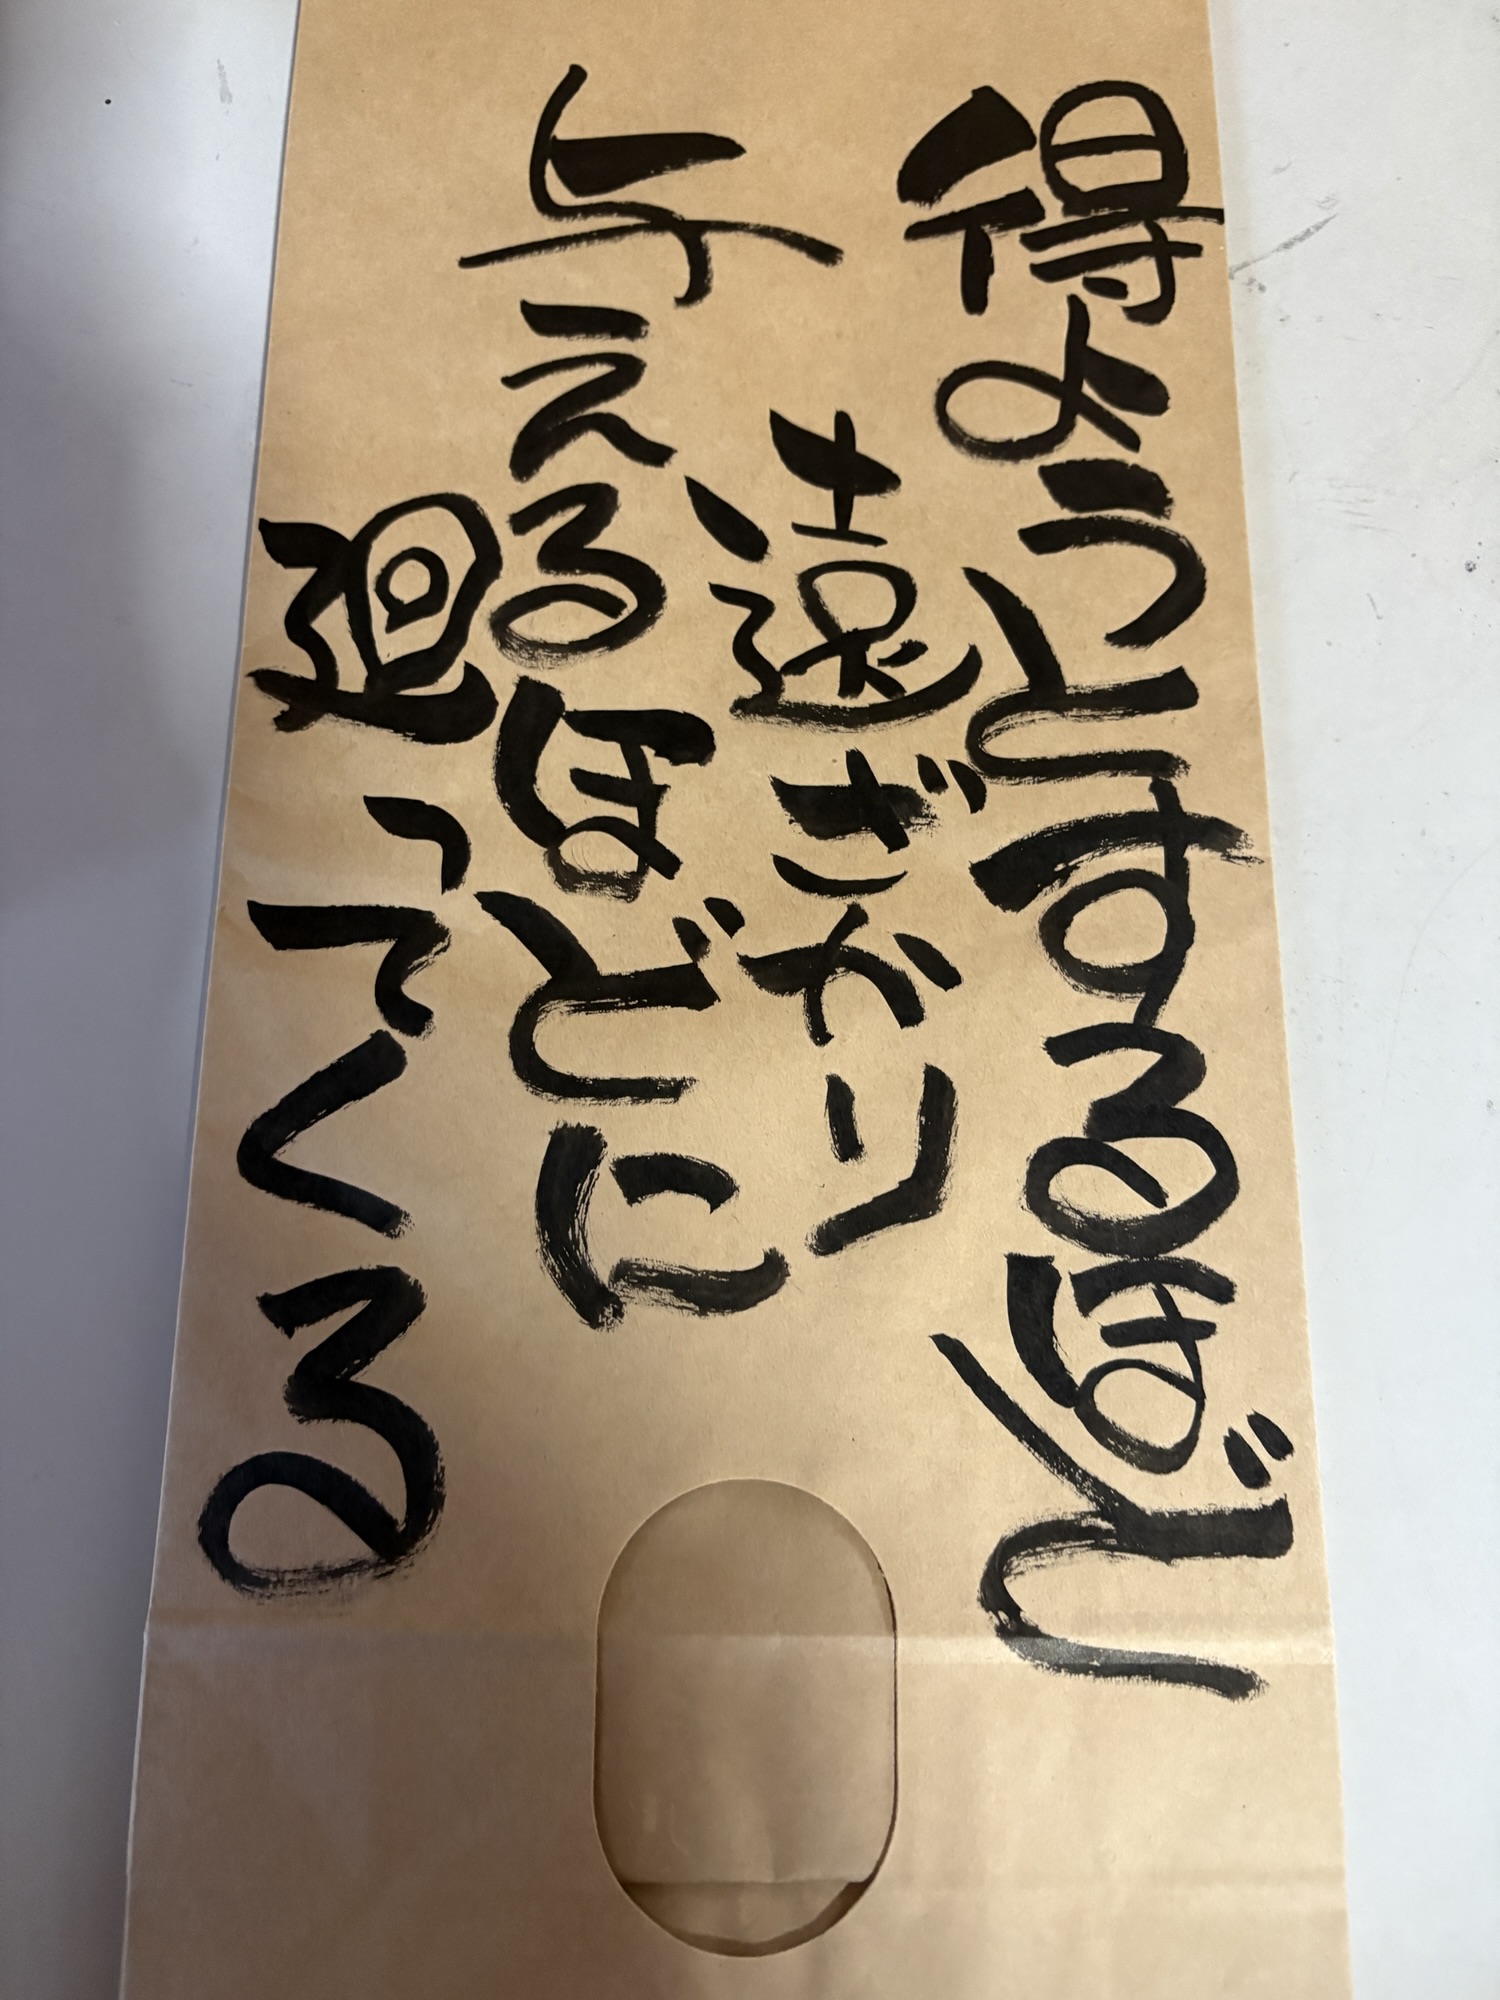 得ようとするほど
遠ざかり
与えるほどに
廻ってくる